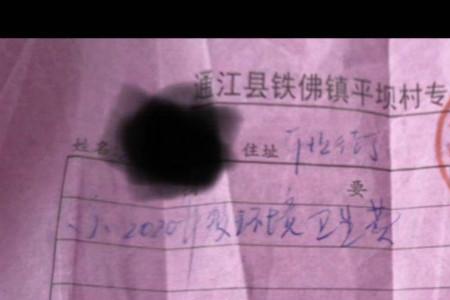 通江县铁佛镇平坝村专
姓名 住址
要
2020年度环境卫生费